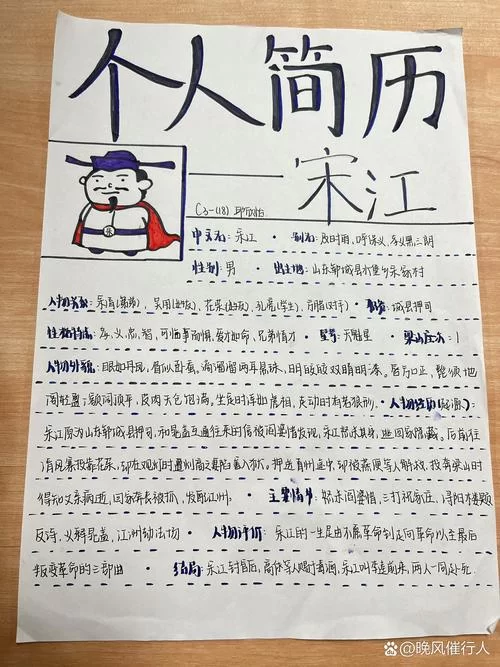 个人简历
宋江
(3-(18)
中文名:宋江 · 别名:及时雨,呼保义,孝义黑三郎
性别:男 · 出生地:山东郓城县水堡乡宋家村
人物关系:宋清(弟弟),吴用(好友),花荣(好友),孔亮(学生),方腊(对手) · 职业:城县押司
性格特点:孝,义,忠,智,可临事而惧,爱才如命,兄弟情才 · 星号:天魁星 · 梁山座次:1
人物外貌:眼如丹凤,眉似卧蚕。滴溜溜两耳悬珠,明皎皎双睛明漆。唇方口正,髭须地
阁轻盈;额阔顶平,皮肉天仓饱满。坐定时浑如虎相,走动时有若狼形。· 人物经历(起源):
宋江原为山东郓城县押司,和晁盖互通往来的信被阎婆惜发现,宋江怒杀其身,逃回家隐藏。后前往
清风寨投靠花荣,却在观灯时遭刘高之妻陷害入本。押送青州途中,却被燕顺等人解救,投奔梁山时
得知父亲病逝,回家奔丧被抓,发配江州。· 主要情节:怒杀阎婆惜,三打祝家庄,浔阳楼题
反诗,义释晁盖,江州劫法场 · 人物评价:宋江的一生是由不愿革命到走向革命以至最后
叛变革命的三部曲 · 结局:宋江封官后,高俅等人赐封毒酒,宋江叫李逵前来,两人一同赴死.
@晚风催行人